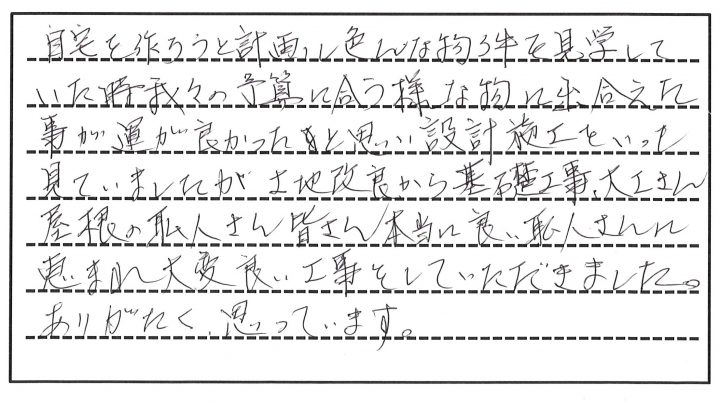 自宅を作ろうと計画し色んな物件を見学して
いた時我々の予算に合う様な物に出合えた
事が運が良かったと思い設計施工をいつも
見ていましたが土地改良から基礎工事、大工さん
屋根の職人さん皆さん本当に良い職人さんに
恵まれ大変良い工事をしていただきました。
ありがたく思っています。